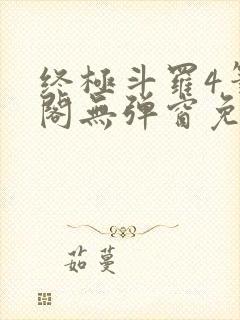 终極斗羅4
閣無彈窗免
茹蔓